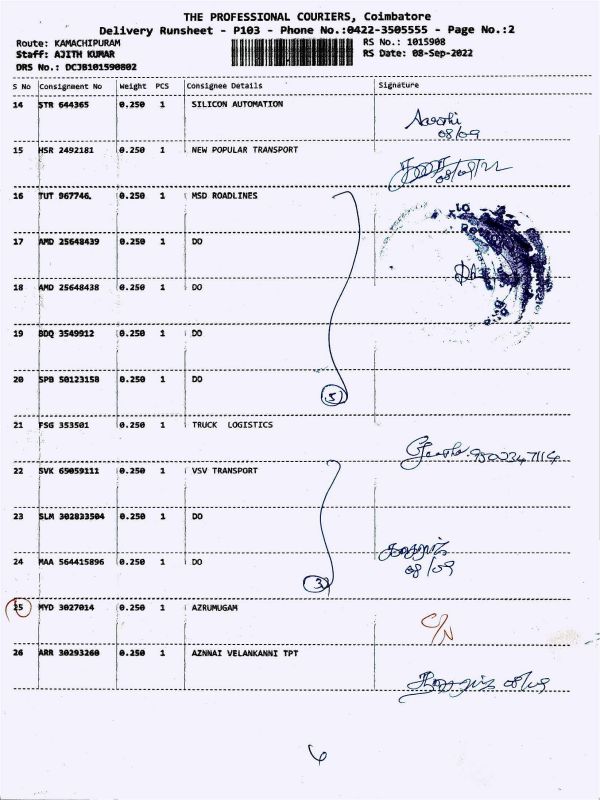 THE PROFESSIONAL COURIERS, Coimbatore
Delivery Runsheet - P103 - Phone No.:0422-3505555 - Page No.:2
Route: KAMACHIPURAM
RS No.: 1015908
Staff: AJITH KUMAR
RS Date: 08-Sep-2022
DRS No.: DCJB101590802
S No Consignment No Weight PCS Consignee Details Signature
14 STR 644365 0.250 1 SILICON AUTOMATION
08/09
15 HSR 2492181 0.250 1 NEW POPULAR TRANSPORT
08/09/22
16 TUT 967746. 0.250 1 MSD ROADLINES
17 AMD 25648439 0.250 1 DO
18 AMD 25648438 0.250 1 DO
19 BDQ 3549912 0.250 1 DO
20 SPB 50123158 0.250 1 DO
5
21 FSG 353501 0.250 1 TRUCK LOGISTICS
22 SVK 65059111 0.250 1 VSV TRANSPORT
23 SLM 302833504 0.250 1 DO
24 MAA 564415896 0.250 1 DO
08/09
3
25 MYD 3027014 0.250 1 AZRUMUGAM
C/N
26 ARR 30293260 0.250 1 AZNNAI VELANKANNI TPT
08/09
6